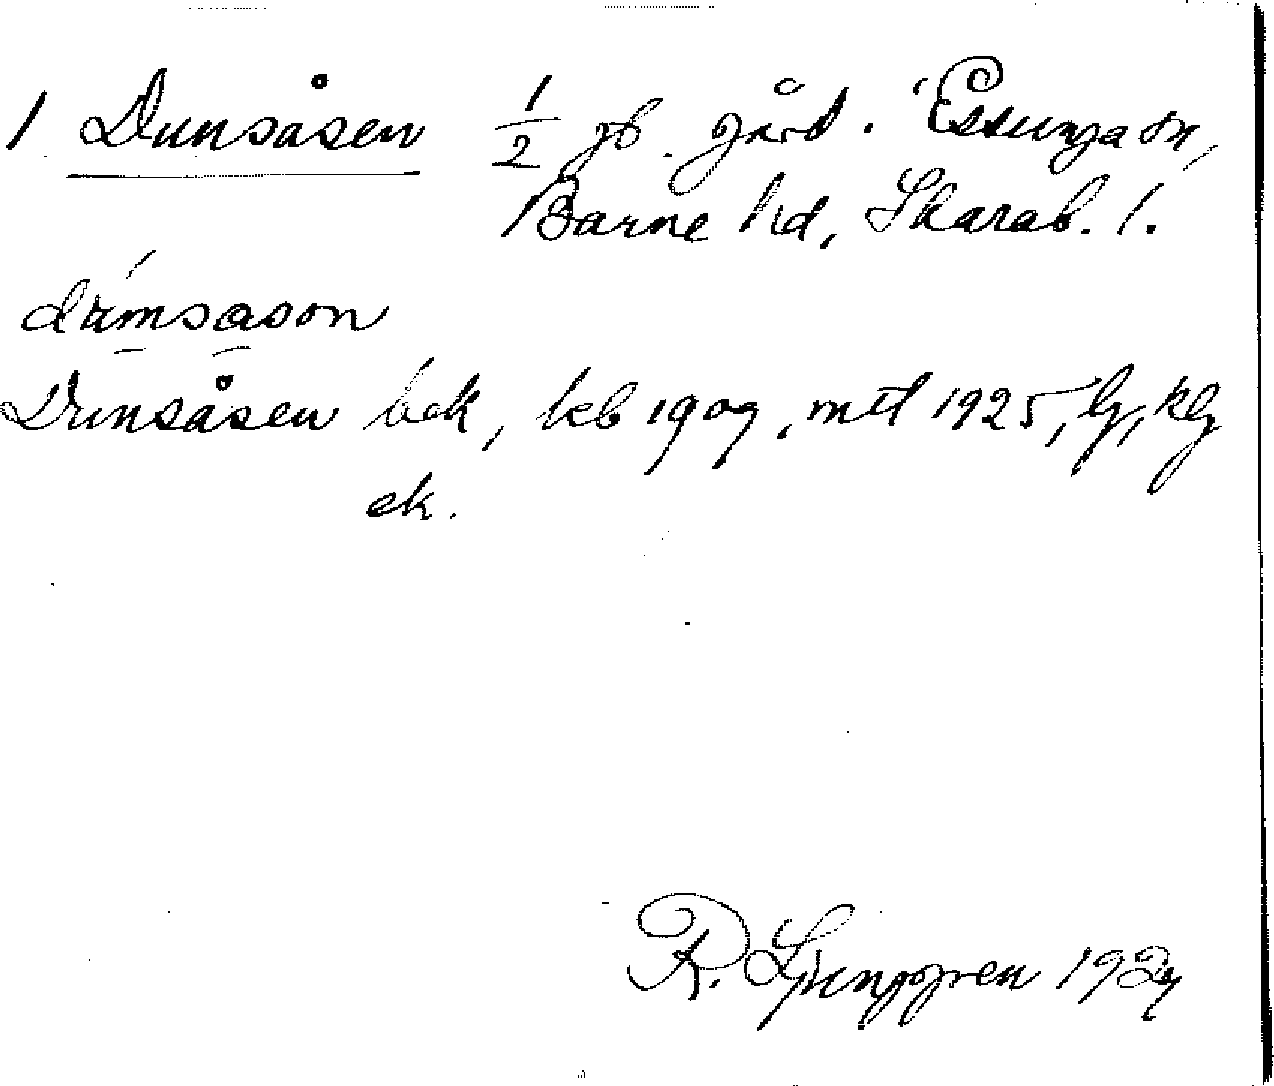 1 Dunsåsen 1/2 gb. gård. Essunga sn,
Barne hd, Skarab. l.
Dunsåsen bek, kb 1909, mtl 1925, lg, klg
ek.
R. Ljunggren 1927